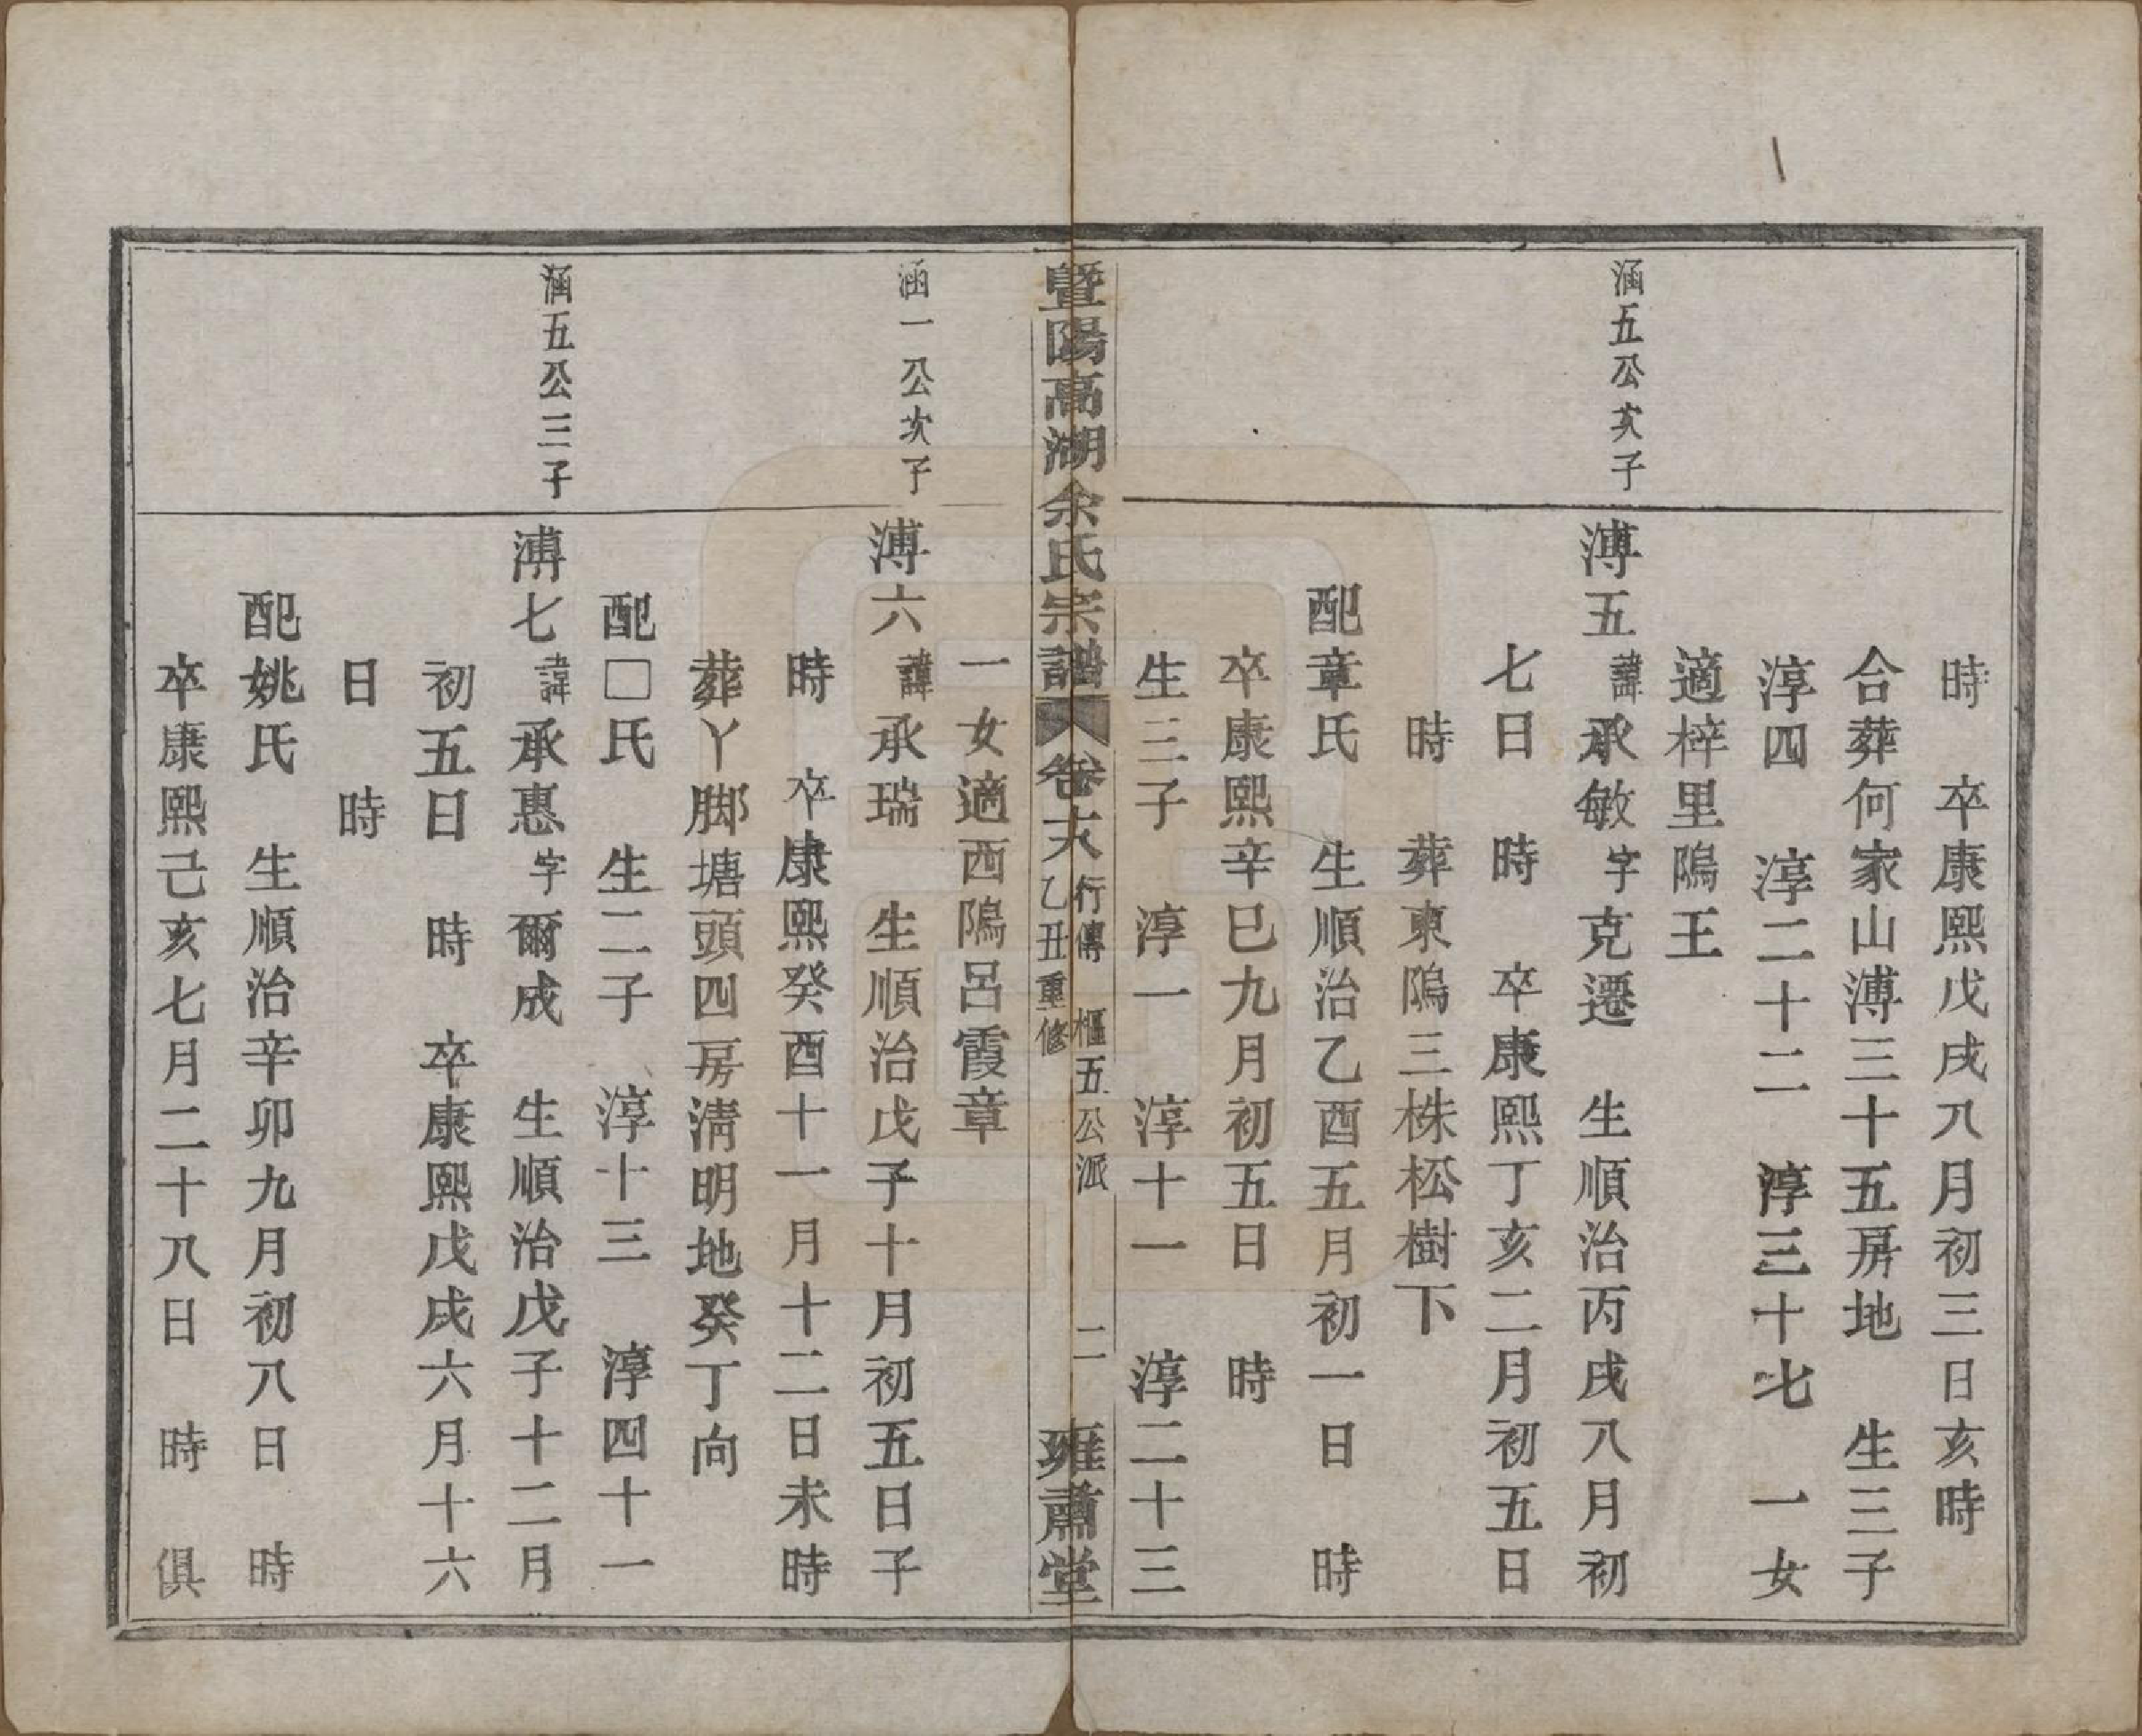 時　卒康熙戊戌八月初三日亥時
合葬何家山溥三十五房地　生三子
淳四　淳二十二　淳三十七　一女
適梓里隖王
涵五公次子
溥五諱承敏字克遷　生順治丙戌八月初
七日　時　卒康熙丁亥二月初五日
時　葬東隖三株松樹下
配章氏　生順治乙酉五月初一日　時
卒康熙辛巳九月初五日　時
生三子　淳一　淳十一　淳二十三
暨陽高湖余氏宗譜　卷十八　行傳　樞五公派　乙丑重修　二　雍肅堂
一女適西隖呂霞章
涵一公次子
溥六諱承瑞　生順治戊子十月初五日子
時　卒康熙癸酉十一月十二日未時
葬丫脚塘頭四房淸明地癸丁向
配□氏　生二子　淳十三　淳四十一
涵五公三子
溥七諱承惠字爾成　生順治戊子十二月
初五日　時　卒康熙戊戌六月十六
日　時
配姚氏　生順治辛卯九月初八日　時
卒康熙己亥七月二十八日　時　俱